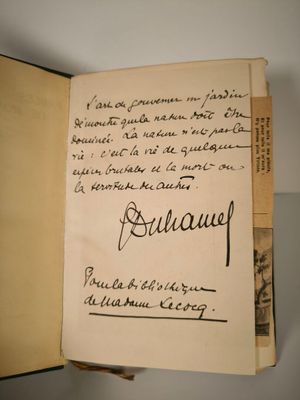 L'art de gouverner un jardin
démontre que la nature doit être
dominée. La nature n'est pas la
vie : c'est la vie de quelques
espèces brutales et la mort ou
la servitude des autres.
GDuhamel
Pour la bibliothèque
de Madame Lecocq.